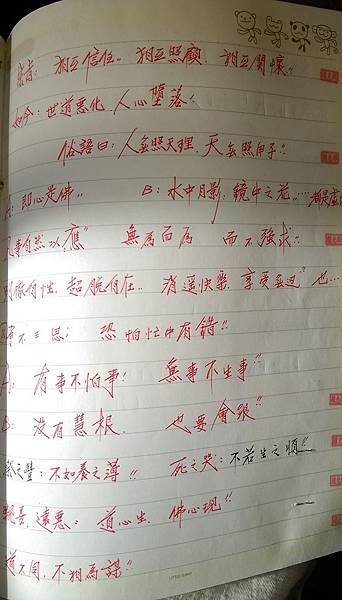 家旨：獨立信任。獨立照顧，獨立關懷!!
如今：世道惡化，人心墮落!!
俗語曰：人無照天理，天無照甲子!!
A：即心是佛。 B：水中月影，鏡中之花……都是虛
凡事自然以"應" 無為而為 而不強求!!
超脫自在。逍遙快樂，享受 也…
不三思； 恐怕忙中有錯!!
A：有事不怕事! 無事不生事"
B：沒有慧根 也要會跟"
祭之豐：不如養之薄!! 死之哭：不若生之順!!
親善、遠惡：道心生，佛心現!!
道不同，不相為謀!!